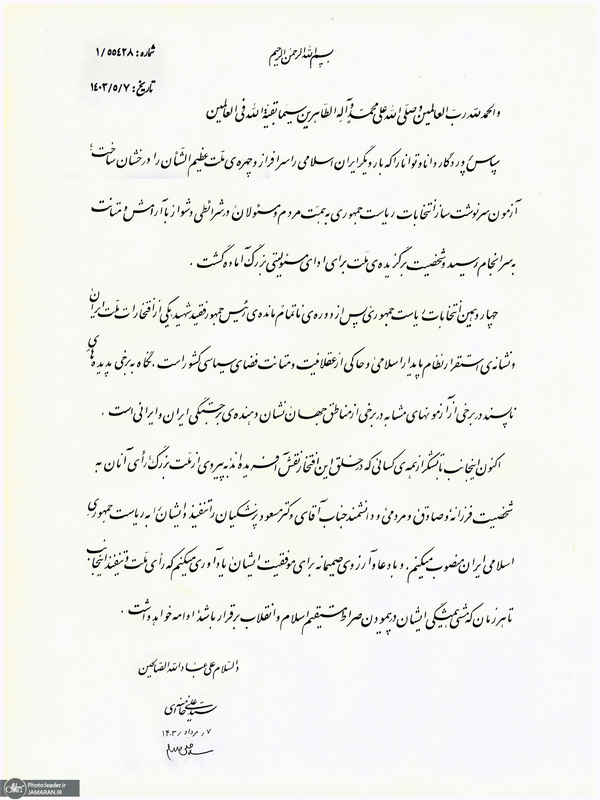 بسم الله الرحمن الرحیم
شماره: ۱/۵۵۴۲۸
تاریخ: ۱۴۰۳/۵/۷
والحمدلله ربّ العالمین و صلّی الله علی محمّد و آله الطّاهرین سیّما بقیّة الله فی العالمین
سپاس پروردگار دانا و توانا را که بار دیگر ایران اسلامی را سرافراز و چهره‌ی ملّت عظیم الشّأن را درخشان ساخت؛
آزمون سرنوشت ساز انتخابات ریاست جمهوری به همّت مردم و مسئولان در شرائطی دشوار با آرامش و متانت
به سرانجام رسید و شخصیت برگزیده‌ی ملّت برای ادای مسئولیتی بزرگ آماده گشت .
چهاردهمین انتخابات ریاست جمهوری پس از دوره‌ی ناتمام مانده‌ی رئیس جمهور فقید شهید یکی از افتخارات ملّت ایران
و نشانه‌ی استقرار نظام پایدار اسلامی و حاکی از عقلانیت و متانت فضای سیاسی کشور است . نگاه به برخی پدیده‌های
ناپسند در برخی از آزمونهای مشابه در برخی از مناطق جهان نشان دهنده‌ی برجستگی ایران و ایرانی است .
اکنون اینجانب با تشکر از همه‌ی کسانی که در خلق این افتخار نقش آفریده‌اند به پیروی از ملّت بزرگ، رأی آنان به
شخصیت فرزانه و صادق و مردمی و دانشمند جناب آقای دکتر مسعود پزشکیان را تنفیذ و ایشان را به ریاست جمهوری
اسلامی ایران منصوب میکنم . و با دعا و آرزوی صمیمانه برای موفقیت ایشان یادآوری میکنم که رأی ملّت و تنفیذ اینجانب
تا هر زمان که مشی همیشگی ایشان در پیمودن صراط مستقیم اسلام و انقلاب برقرار باشد ادامه خواهد داشت .
والسّلام علی عباد الله الصّالحین
سیّد علی خامنه‌ای
۷/مرداد/۱۴۰۳
Photo:leader.ir
JAMARAN.IR